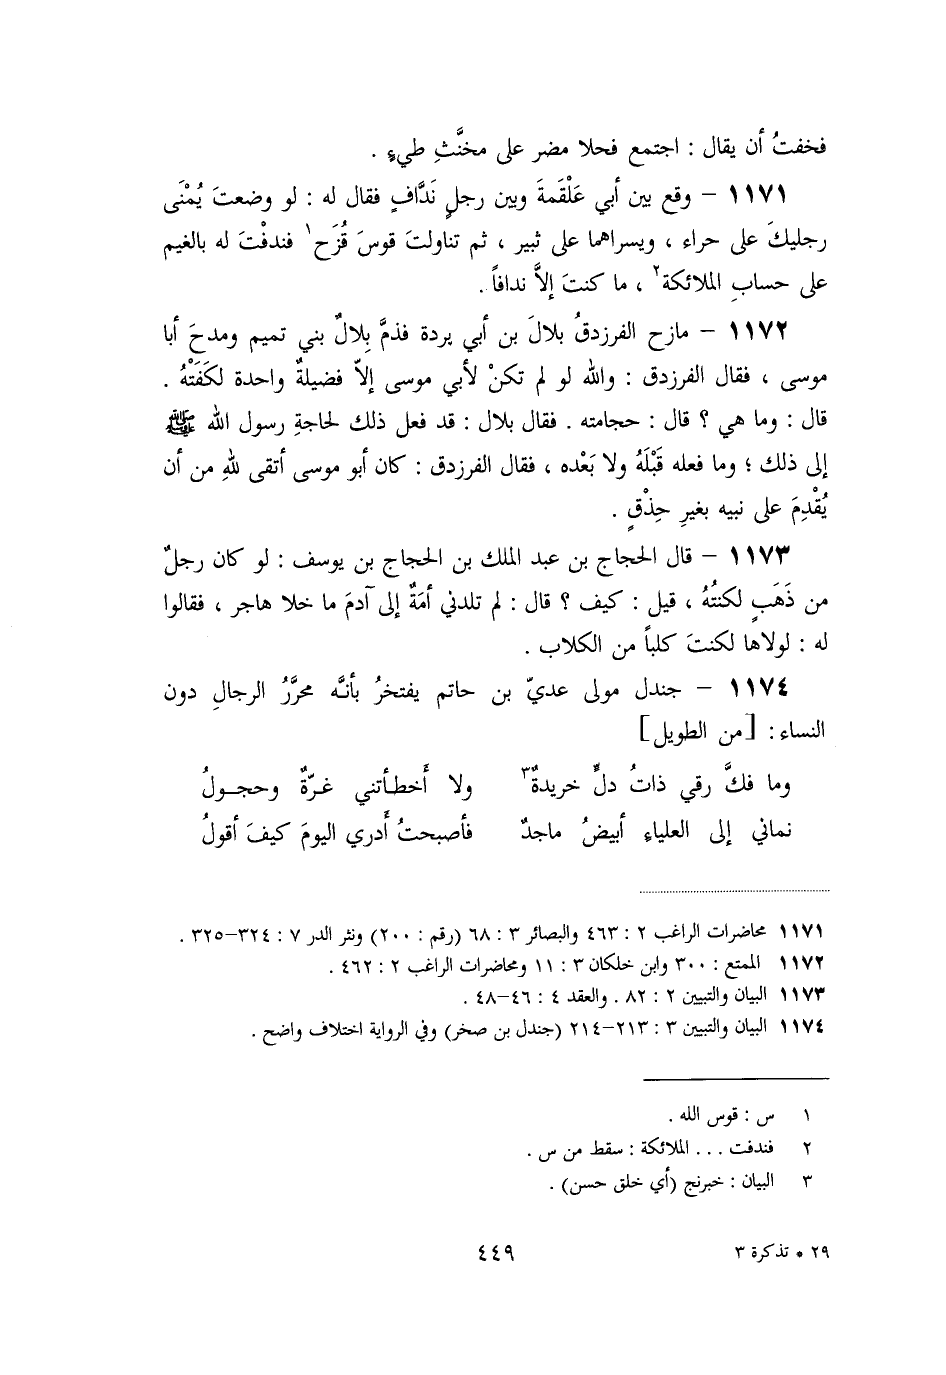 فخفتُ أن يقال : اجتمع فحلا مضر على مخنَّثِ طيءٍ .
١١٧١ – وقع بين أبي عَلْقَمةَ وبين رجلٍ نَدَّافٍ فقال له : لو وضعتَ يُمْنَى
رجليكَ على حراء ، ويسراهما على ثبير ، ثم تناولتَ قوسَ قُزَح١ فندفْتَ له بالغيم
على حسابِ الملائكة٢ ، ما كنتَ إلاَّ ندافاً .
١١٧٢ – مازح الفرزدقُ بلالَ بن أبي بردة فذمَّ بِلالٌ بني تميم ومدحَ أبا
موسى ، فقال الفرزدق : والله لو لم تكنْ لأبي موسى إلاّ فضيلةٌ واحدة لكَفَتْهُ .
قال : وما هي ؟ قال : حجامته . فقال بلال : قد فعل ذلك لحاجةِ رسول الله ﷺ
إلى ذلك ؛ وما فعله قَبْلَهُ ولا بَعْده ، فقال الفرزدق : كان أبو موسى أتقى للهِ من أن
يُقْدِمَ على نبيه بغيرِ حِذْقٍ .
١١٧٣ – قال الحجاج بن عبد الملك بن الحجاج بن يوسف : لو كان رجلٌ
من ذَهَبٍ لكنتُهُ ، قيل : كيف ؟ قال : لم تلدني أمَةٌ إلى آدمَ ما خلا هاجر ، فقالوا
له : لولاها لكنتَ كلباً من الكلاب .
١١٧٤ – جندل مولى عديّ بن حاتم يفتخرُ بأنَّه محرَّرُ الرجالِ دون
النساء : [من الطويل]
وما فكَّ رقي ذاتُ دلٍّ خريدةٌ٣ ولا أَخطأتني غرّةٌ وحجولُ
نماني إلى العلياءِ أبيضُ ماجدٌ فأصبحتُ أَدري اليومَ كيفَ أقولُ
١١٧١ محاضرات الراغب ٢ : ٤٦٣ والبصائر ٣ : ٦٨ (رقم : ٢٠٠) ونثر الدر ٧ : ٣٢٤–٣٢٥ .
١١٧٢ الممتع : ٣٠٠ وابن خلكان ٣ : ١١ ومحاضرات الراغب ٢ : ٤٦٢ .
١١٧٣ البيان والتبيين ٢ : ٨٢ . والعقد ٤ : ٤٦–٤٨ .
١١٧٤ البيان والتبيين ٣ : ٢١٣–٢١٤ (جندل بن صخر) وفي الرواية اختلاف واضح .
١ س : قوس الله .
٢ فندفت ... الملائكة : سقط من س .
٣ البيان : خبرنج (أي خلق حسن) .
٢٩ • تذكرة ٣ ٤٤٩